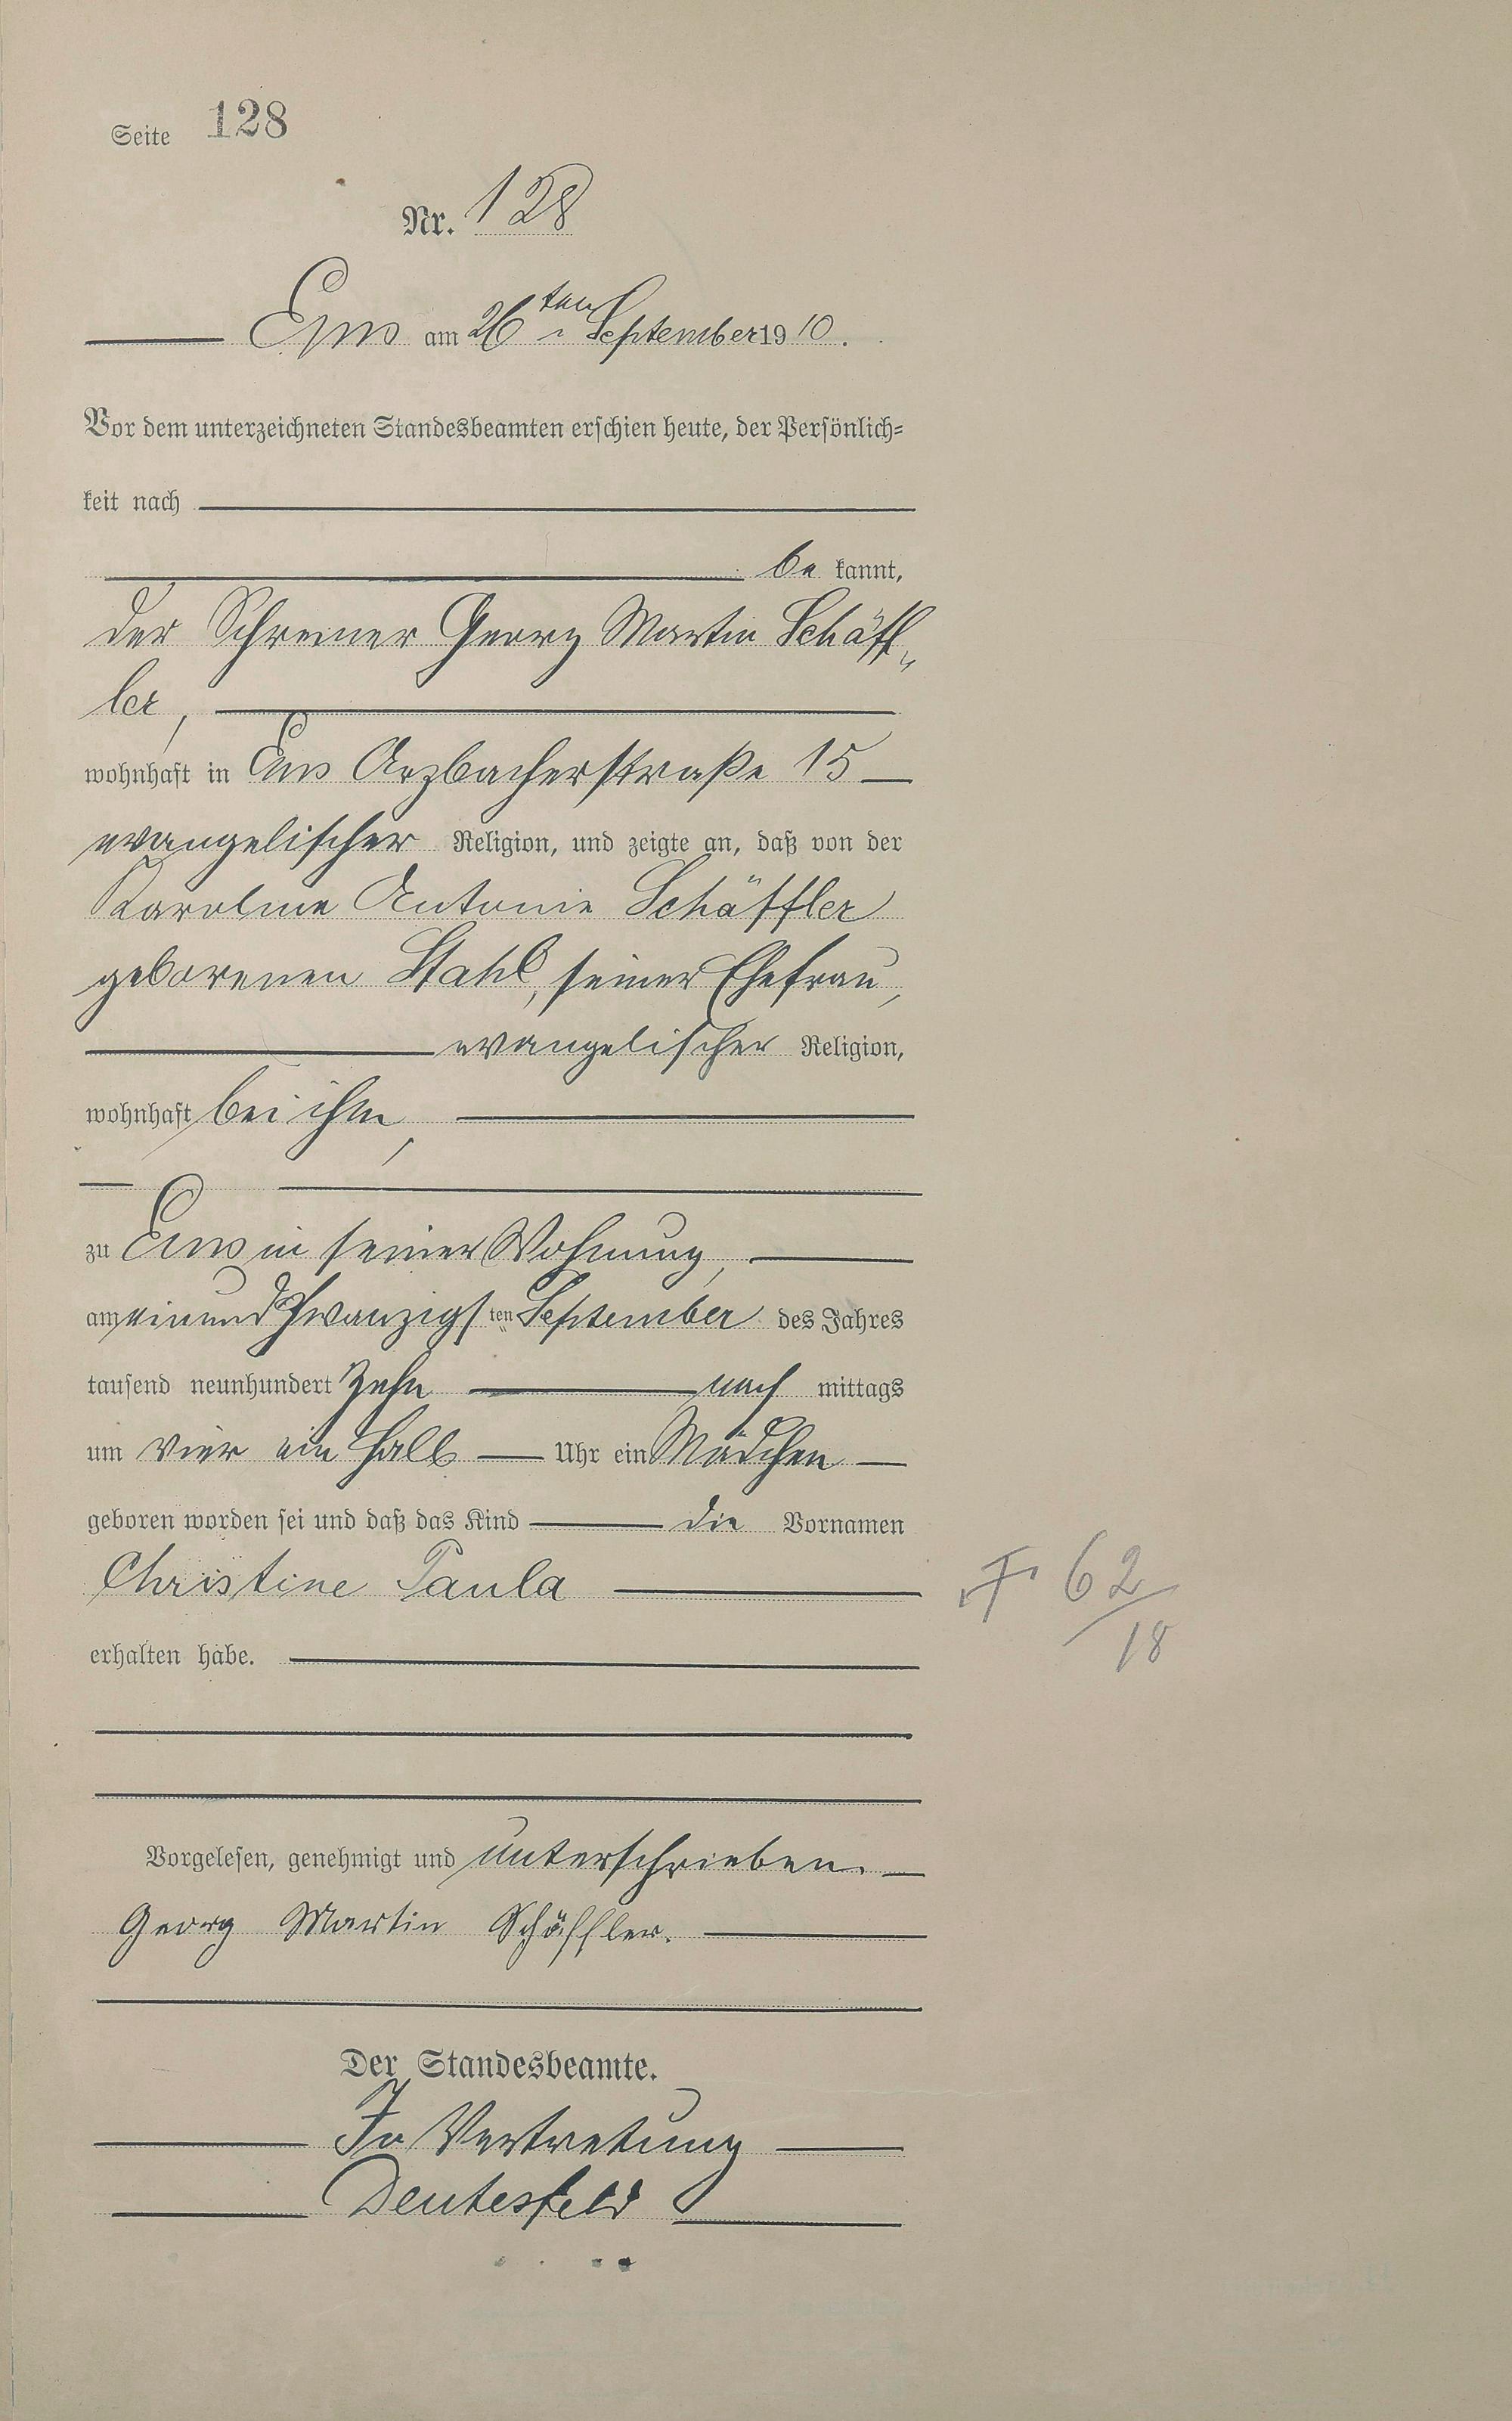 Seite 128
Nr. 128
Ems am 26ten September 1910.
Vor dem unterzeichneten Standesbeamten erschien heute, der Persönlich=
keit nach
be kannt,
der Schreiner Georg Martin Schäff„
ler,
wohnhaft in Ems Arzbacherstraße 15
evangelischer Religion, und zeigte an, daß von der
Karoline Antonie Schäffler
geborenen Stahl, seiner Ehefrau,
evangelischer Religion,
wohnhaft bei ihm,
zu Ems in seiner Wohnung,
am einundzwanzigsten September des Jahres
tausend neunhundert zehn nach mittags
um vier ein halb Uhr ein Mädchen
geboren worden sei und daß das Kind die Vornamen
Christine Paula
† 62/18
erhalten habe.
Vorgelesen, genehmigt und unterschrieben.
Georg Martin Schäffler.
Der Standesbeamte.
In Vertretung
Deutesfeld